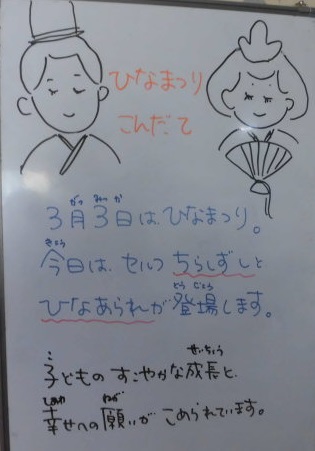 ひなまつり
こんだて
3月3日は、ひなまつり。
今日は、セルフちらしずしと
ひなあられが登場します。
子どものすこやかな成長と、
幸せへの願いがこめられています。